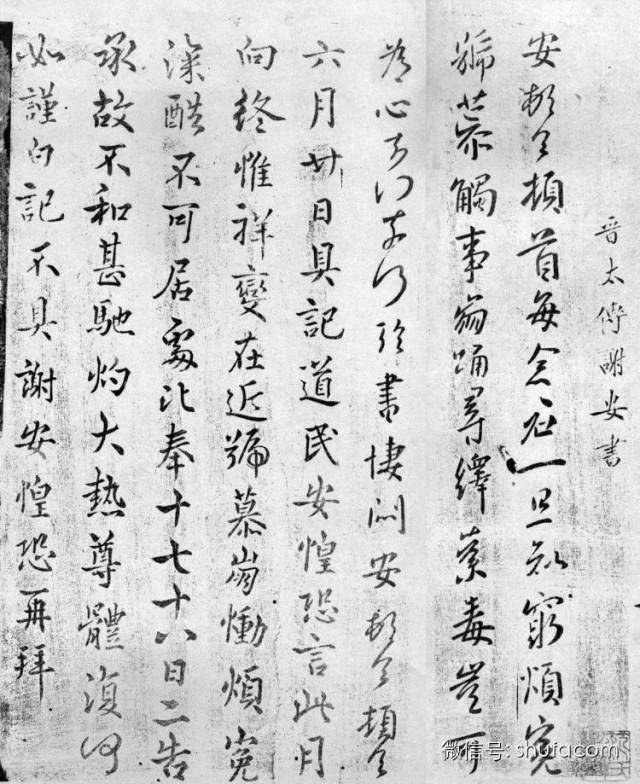 晋太傅谢安書
安頓首頓首每念君一旦知窮煩冤
號慕觸事崩踊尋繹荼毒豈可
為心奈何奈何臨書悽悶安頓首頓首
六月廿日具記道民安惶恐言此月
向終惟祥變在近號慕崩慟煩冤
深酷不可居處比奉十七十八日二告
承故不和甚馳灼大熱尊體復何
如謹白記不具謝安惶恐再拜
微信号: shufacom